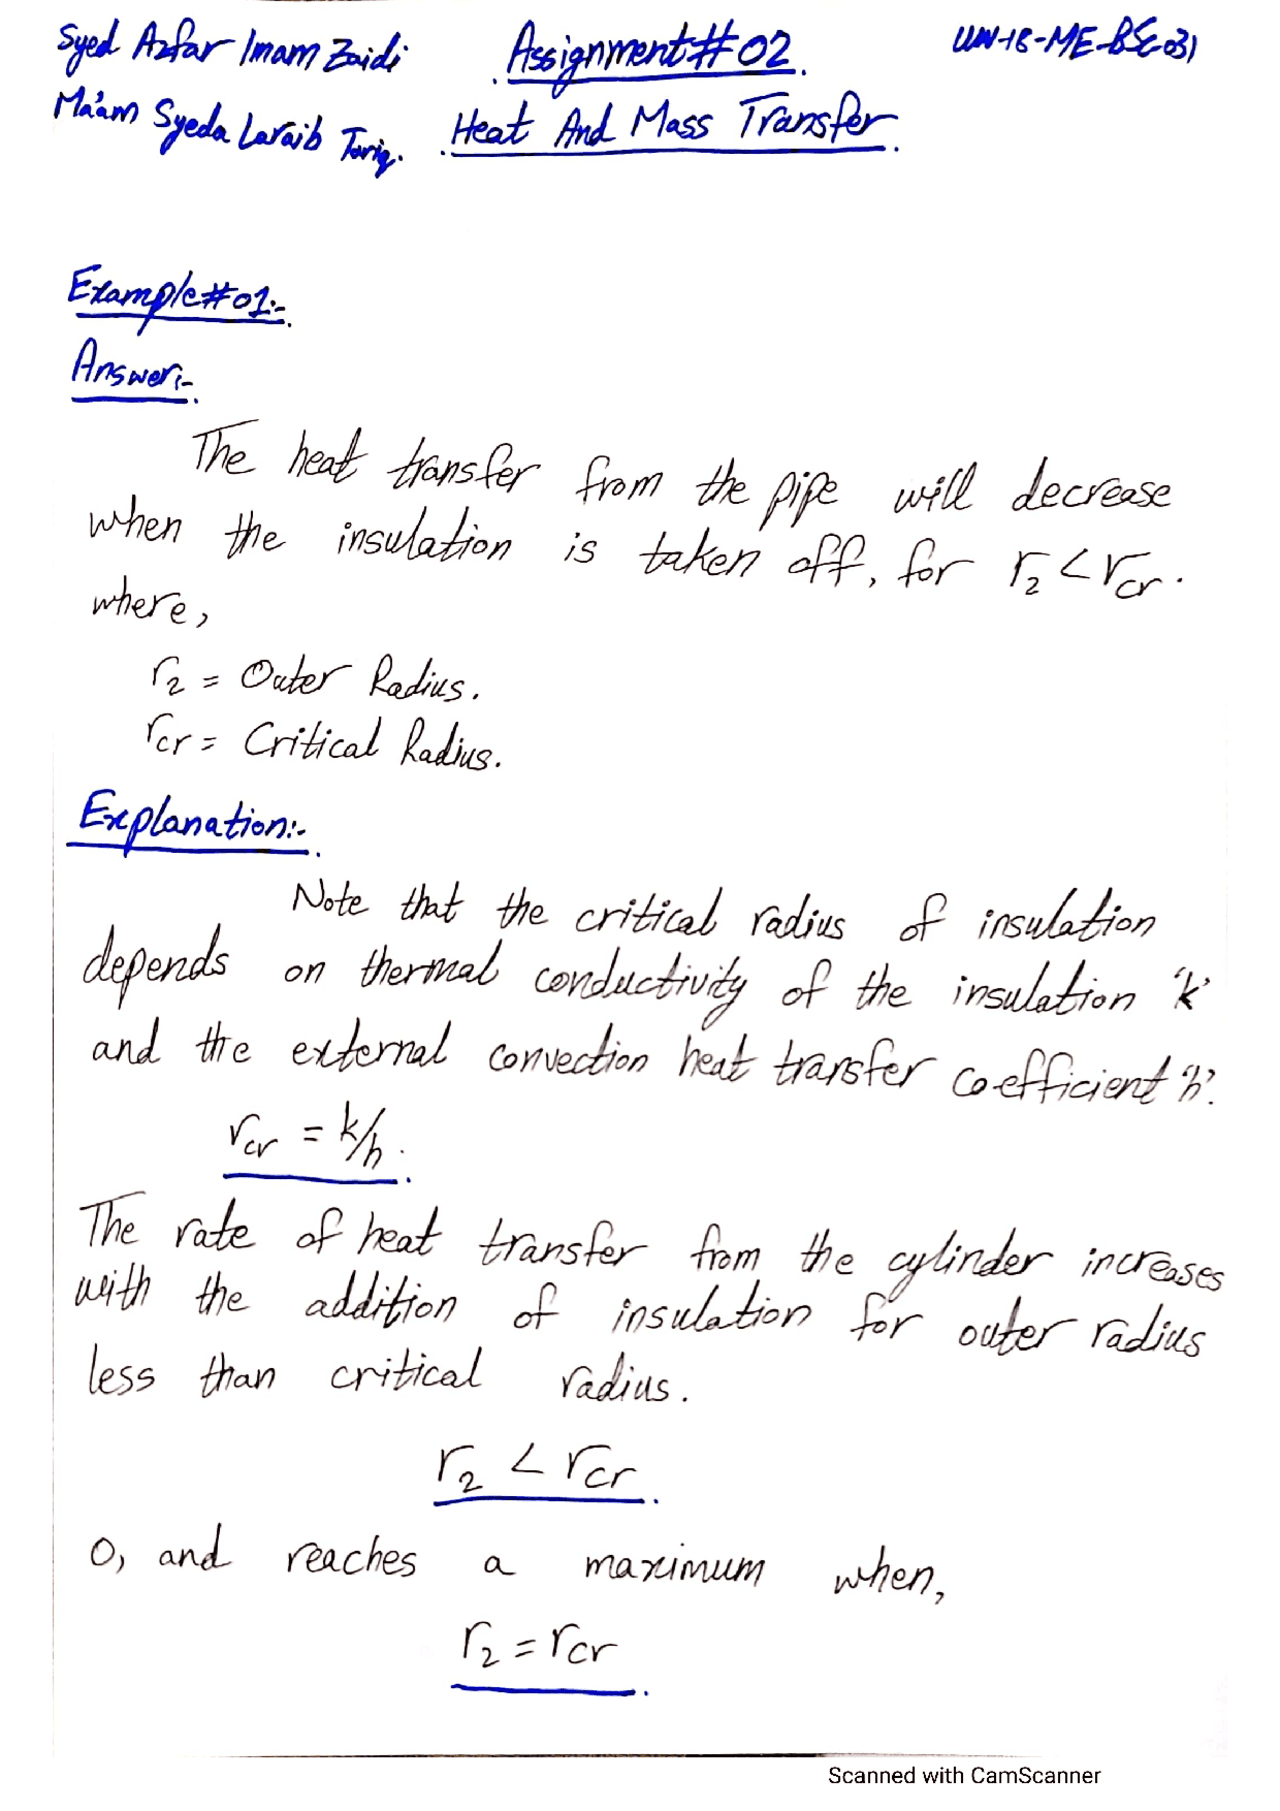 Syed Azfar Imam Zaidi Assignment#02 UW-18-ME-BSC-031
Ma'am Syeda Laraib Tariq. Heat And Mass Transfer
Example#01:-
Answer:-
The heat transfer from the pipe will decrease
when the insulation is taken off, for r₂ < rcr.
where,
r₂ = Outer Radius.
rcr = Critical Radius.
Explanation:-
Note that the critical radius of insulation
depends on thermal conductivity of the insulation 'k'
and the external convection heat transfer co-efficient 'h'.
rcr = k/h.
The rate of heat transfer from the cylinder increases
with the addition of insulation for outer radius
less than critical radius.
r₂ < rcr
0, and reaches a maximum when,
r₂ = rcr
Scanned with CamScanner